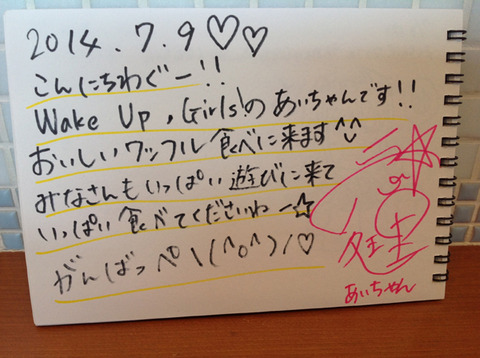 2014.7.9♡♡
こんにちわぐー!!
Wake Up, Girls!のあいちゃんです!!
おいしいワッフル食べに来ます^^
みなさんもいっぱい遊びに来て
いっぱい食べてくださいわー☆
がんばっぺ\(^o^)/♡
あいちゃん